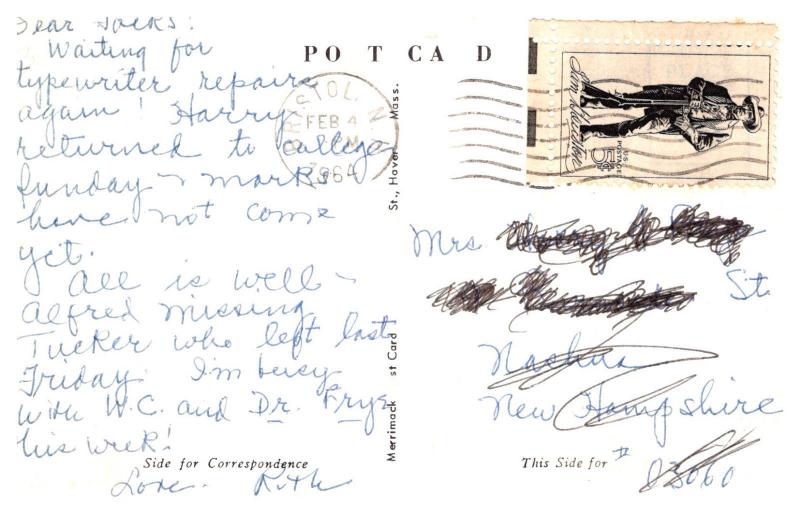 Dear Folks:
Waiting for
typewriter repairs
again! Harry
returned to college
Sunday - marks
have not come
yet.
All is well -
Alfred missing
Tucker who left last
Friday. I'm busy
with W.C. and Dr. Frye
his week!
Love - Ruth
Side for Correspondence
PO T CA D
RISTOL
N
FEB 4
M
1964
St., Haver Mass.
Merrimack st Card
U.S. POSTAGE
5¢
Sam Houston
Mrs
St.
Nashua
New Hampshire
03060
This Side for